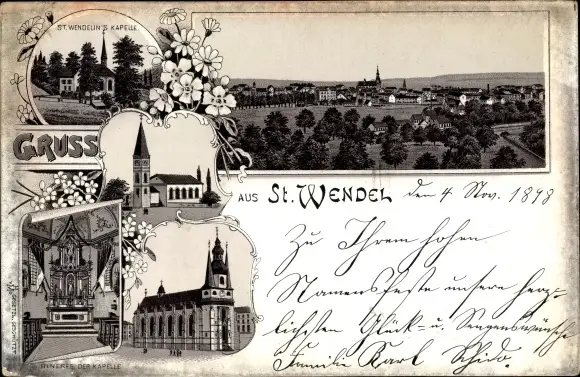 ST. WENDELIN'S KAPELLE
GRUSS
AUS ST. WENDEL
den 4. Nov. 1898
Zu Ihrem hohen
Namensfeste unsere herz-
lichsten Glück- u. Segenswünsche
Familie Karl
INNERES DER KAPELLE